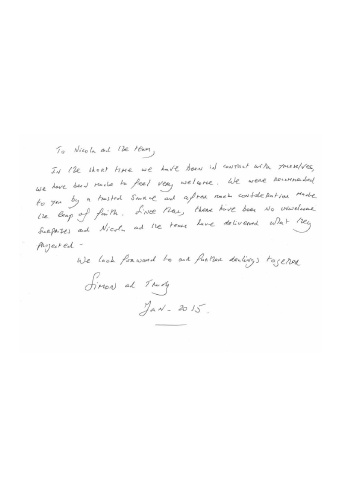 To Nicola and the team,
In the short time we have been in contact with yourselves,
we have been made to feel very welcome. We were recommended
to you by a trusted source and after much consideration made
the leap of faith. Since then, there have been no unwelcome
surprises and Nicola and the team have delivered what they
projected -
We look forward to our further dealings together
Simon and Trudy
Jan - 2015.